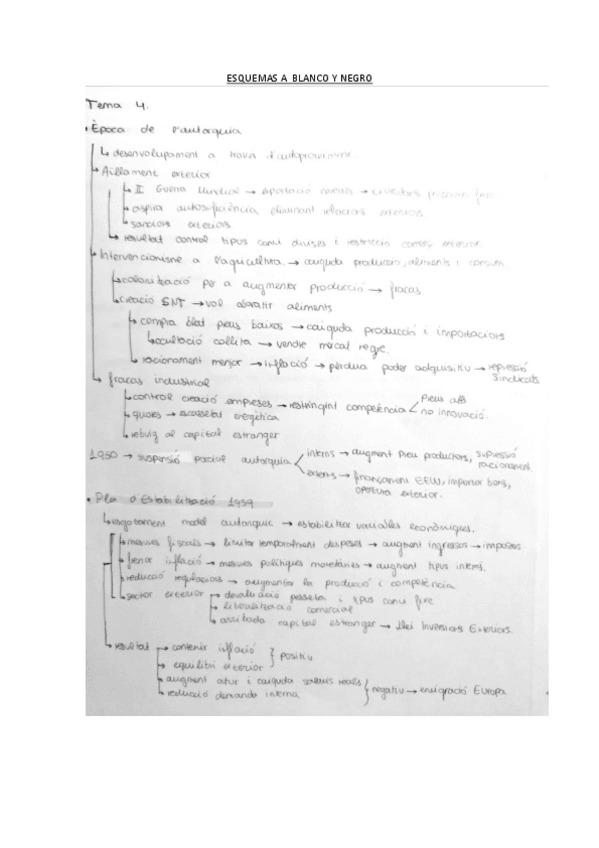 ESQUEMAS A BLANCO Y NEGRO
Tema 4.
• Època de l'autarquia
↳ desenvolupament a través d'autoproveïment.
↳ Aïllament exterior
↳ II Guerra Mundial →
↳ aspira autosuficiència eliminant relacions exteriors
↳ sancions exteriors
↳ resultat control tipus canvi divises i restricció comerç exterior.
↳ Intervencionisme a l'agricultura → caiguda producción, aliments i consum
↳ colonització per a augmentar producció → fracas
↳ creació SNT → vol abaratir aliments
↳ compra blat preus baixos → caiguda producción i importacions
↳ ocultació collita → vendre mercat negre.
↳ racionament menjar → inflació → pèrdua poder adquisitiu → repressió
sindicats
↳ fracas industrial
↳ control creació empreses → restringint competència < preus alts
no innovació.
↳ quotes → escassetat energètica
↳ rebuig al capital estranger
1950 → suspensió parcial autarquia < interns → augment preu productors, supressió
racionament
externs → finançament EEUU, importar bens,
obertura exterior.
• Pla d'Estabilització 1959
↳ esgotament model autarquic → estabilitzar variables econòmiques.
↳ mesures fiscals → limitar temporalment despeses → augment ingressos → impostos
↳ frenar inflació → mesures polítiques monetàries → augment tipus interés.
↳ reducció regulacions → augmentar la producció i competència
↳ sector exterior → devaluació pesseta i tipus canvi fixe
↳ liberalització comercial
↳ arribada capital estranger → Llei Inversions Exteriors.
↳ resultat → contenir inflació
↳ equilibri exterior } positiu
↳ augment atur i caiguda salaris reals
↳ reducció demanda interna } negatiu → emigració Europa